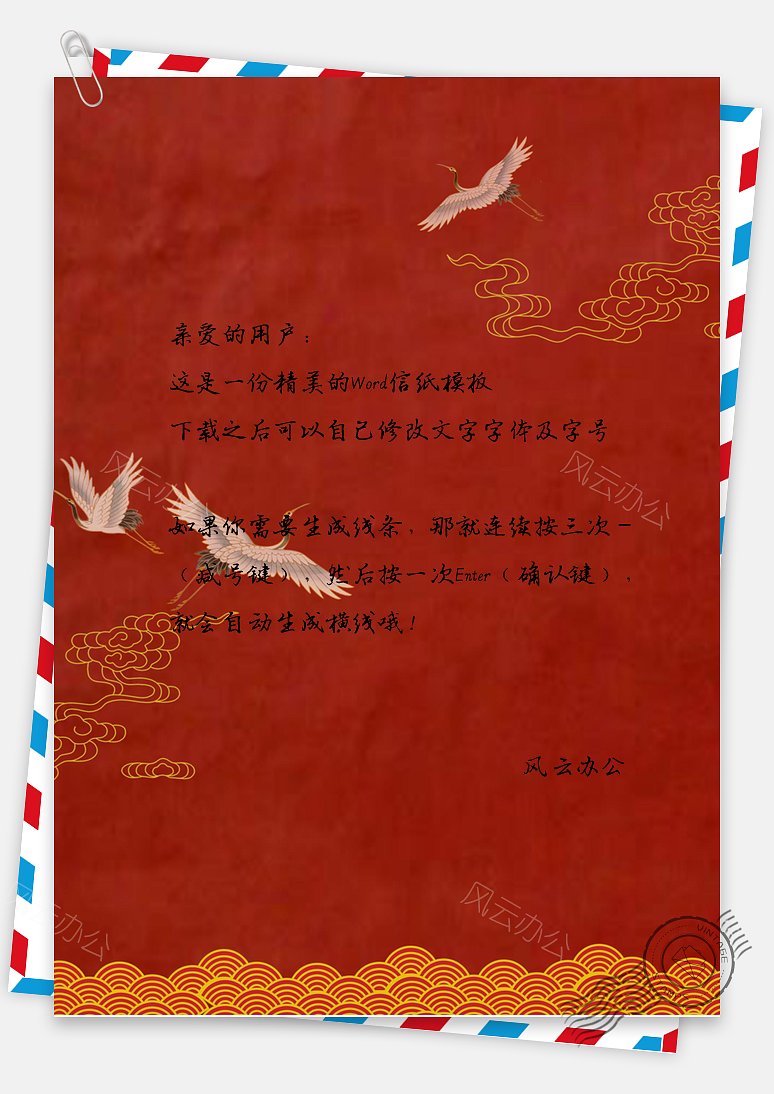 亲爱的用户：
这是一份精美的Word信纸模板
下载之后可以自己修改文字字体及字号
如果你需要生成线条，那就连续按三次－
（减号键），然后按一次Enter（确认键），
就会自动生成横线哦！
风云办公
风云办公
风云办公
风云办公
风云办公
VINTAGE